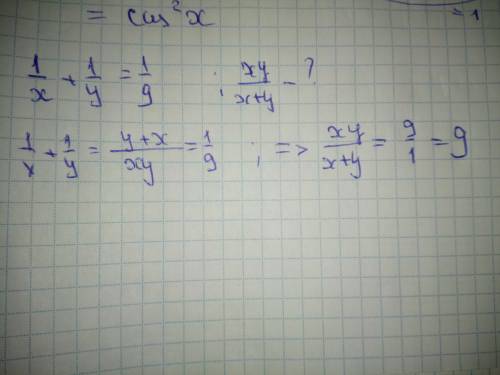 = cos²x = 1
1/x + 1/y = 1/9 ; xy/x+y - ?
1/x + 1/y = y+x/xy = 1/9 ; => xy/x+y = 9/1 = 9